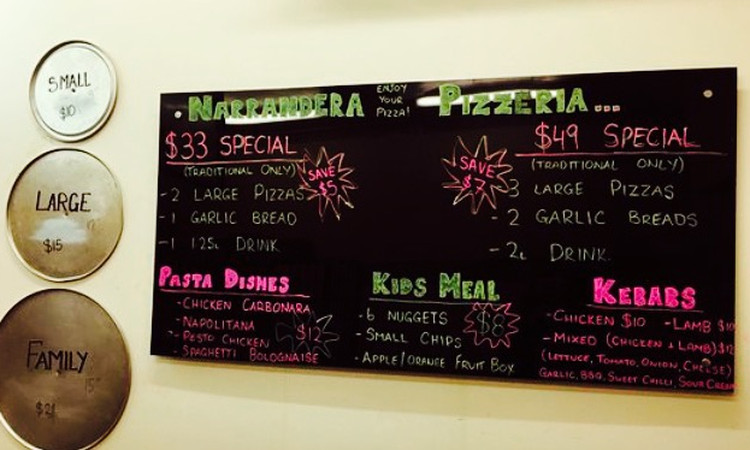 SMALL
$10
LARGE
$15
FAMILY
15"
$21
NARRANDERA ENJOY YOUR PIZZA! PIZZERIA...
$33 SPECIAL
(TRADITIONAL ONLY)
SAVE $5
-2 LARGE PIZZAS
-1 GARLIC BREAD
-1 1.25L DRINK
$49 SPECIAL
(TRADITIONAL ONLY)
SAVE $7
-3 LARGE PIZZAS
-2 GARLIC BREADS
-2L DRINK
PASTA DISHES
-CHICKEN CARBONARA
-NAPOLITANA
-PESTO CHICKEN
-SPAGHETTI BOLOGNAISE
$12
KIDS MEAL
-6 NUGGETS
-SMALL CHIPS
-APPLE/ORANGE FRUIT BOX
$8
KEBABS
-CHICKEN $10 -LAMB $10
-MIXED (CHICKEN & LAMB) $12
(LETTUCE, TOMATO, ONION, CHEESE)
GARLIC, BBQ, SWEET CHILLI, SOUR CREAM